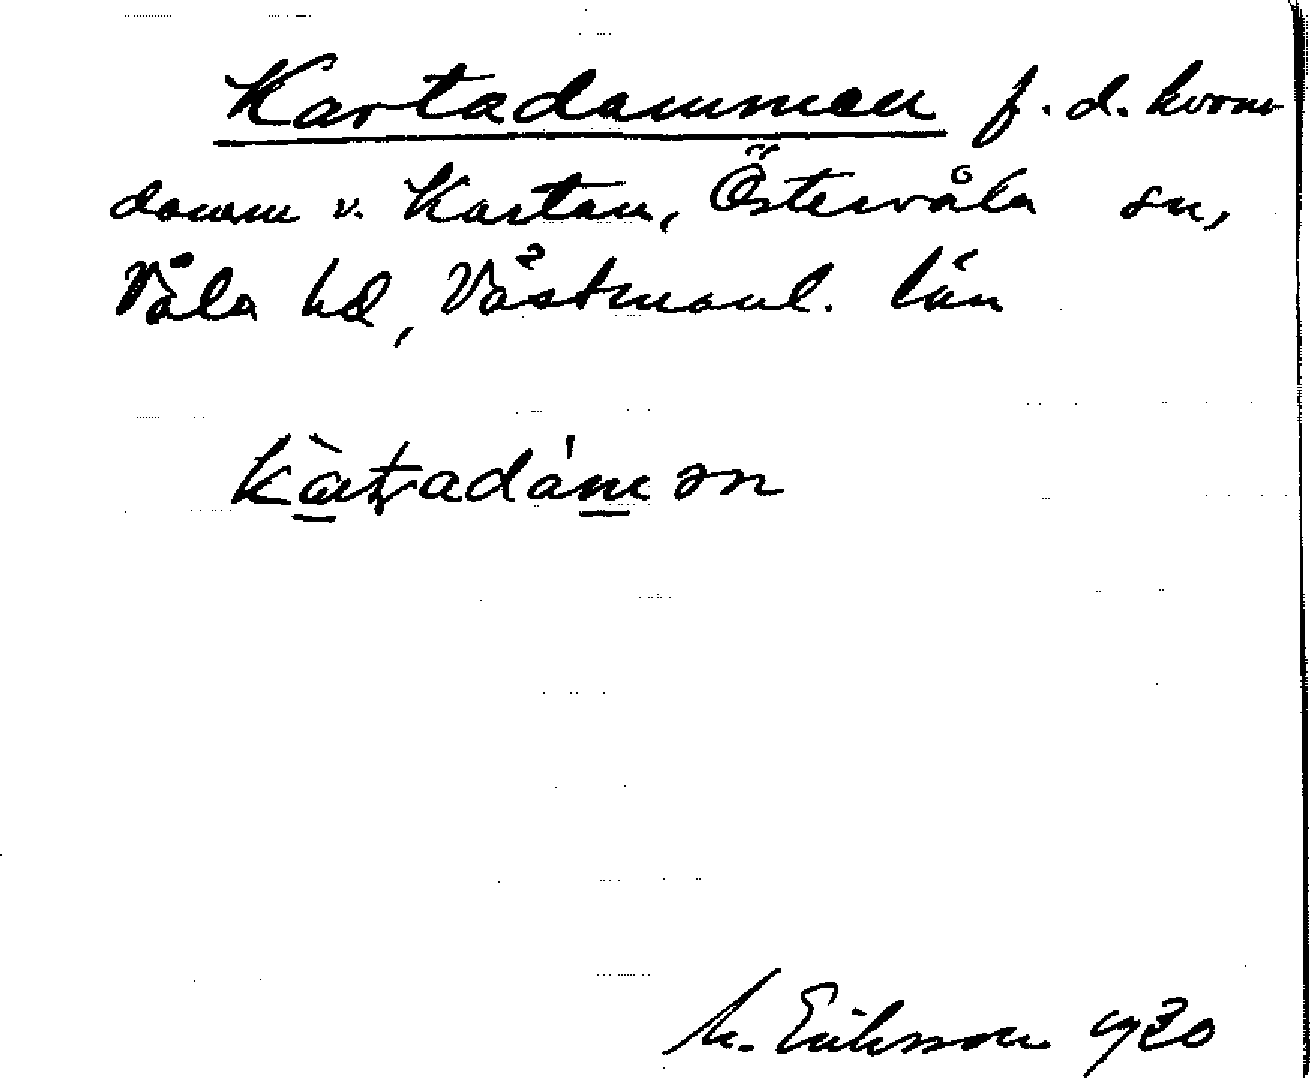 Kartadammen f. d. kvarn
damm v. Kartan, Östervåla sn,
Våla hd, Västmanl. län
kàṭadám ən
M. Eriksson 1930